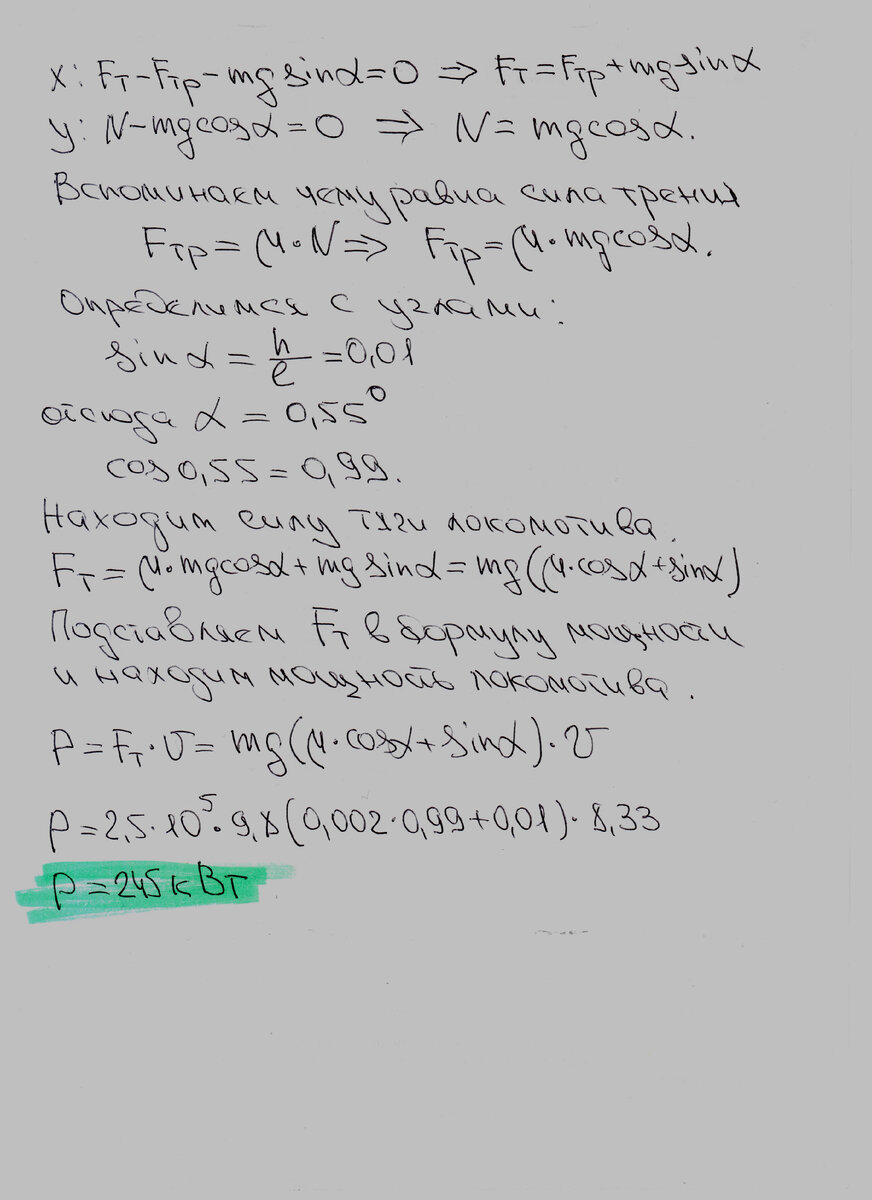 x: Fт-Fтр-mg sinα=0 ⇒ Fт=Fтр+mg sinα
y: N-mg cosα=0 ⇒ N=mg cosα.
Вспоминаем чему равна сила трения
Fтр=μ·N⇒ Fтр=μ·mg cosα.
Определимся с углами:
sin α = h/l = 0,01
отсюда α = 0,55°
cos 0,55 = 0,99.
Находим силу тяги локомотива.
Fт=μ·mg cosα+mg sinα=mg(μ·cosα+sinα)
Подставляем Fт в формулу мощности
и находим мощность локомотива.
P=Fт·υ=mg(μ·cosα+sinα)·υ
P=2,5·10⁵·9,8(0,002·0,99+0,01)·8,33
P=245кВт